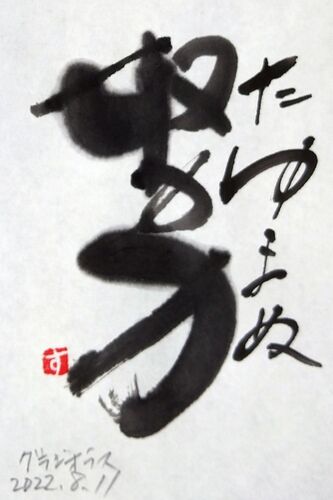 たゆまぬ
努力
す
グラジオラス
2022.8.11